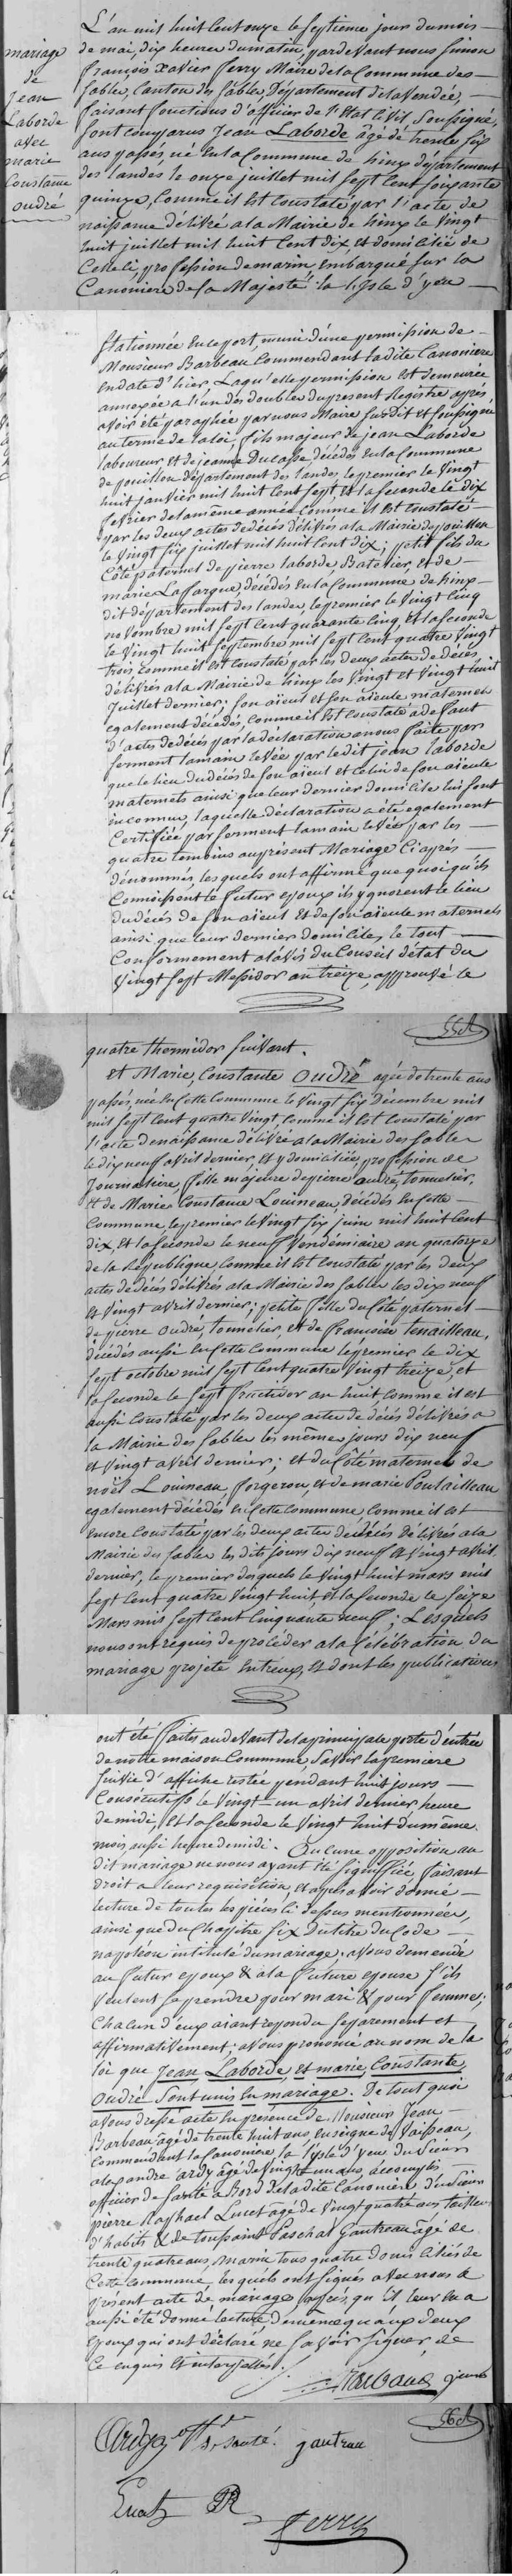 mariage
de
Jean
Laborde
avec
marie
Constante
oudré
L'an mil huit Cent onze le septieme jour du mois
de mai, dix heures du matin, pardevant nous Simon
françois Xavier ferry Maire de la Commune des
sables, Canton des sables Département de la vendée,
faisant fonctions d'officier de l'état Civil soussigné,
sont comparus Jean Laborde âgé de trente six
ans passés, né En la Commune de hinx département
des landes le onze juillet mil sept Cent soixante
quinze, Comme il Est Constaté par l'acte de
naissance délivré a la Mairie de hinx le vingt
huit juillet mil huit Cent dix, et domicilié de
Celle ci, profession de marin Embarqué sur la
Canoniere de sa Majesté la l'isle d'yeu
stationnée En ce port, muni d'une permission de
Monsieur Barbeau Commendant la dite Canoniere
En date d'hier, Laqu'elle permission Est demeurée
annexée a l'un des doubles du present Registre après
avoir été paraphée par nous Maire susdit et soussigné
au terme de la loi, fils majeur de jean Laborde
laboureur Et de jeanne Ducasse décédés En la Commune
de pouillon département des landes le premier le vingt
huit janvier mil huit Cent sept, Et la seconde le dix
fevrier de la même année Comme il Est Constaté
par les deux actes de décès délivrés a la Mairie de pouillon
le vingt six juillet mil huit Cent dix; petit fils du
Côté paternel de pierre laborde, Batelier, Et de
marie Laffargue, décédés En la Commune de hinx
dit département des landes, le premier le vingt Cinq
novembre mil sept Cent quarante Cinq, Et la seconde
le vingt huit septembre mil sept Cent quatre vingt
trois Comme il Est Constaté par les deux actes de décès
délivrés a la Mairie de hinx les vingt et vingt huit
Juillet dernier; son aieul et son aieule maternels
egalement décédés, Comme il Est Constaté a defaut
d'actes de décès par la déclaration a nous faite par
serment la main levée par le dit jean laborde
que le lieu du décès de son aïeul et Celui de son aïeule
maternels ainsi que leur dernier domicile lui sont
inconnus, laquelle déclaration a été egalement
Certifiée par serment la main levée par les
quatre temoins au présent Mariage Ci après
dénommés, lesquels ont affirmé que quoi qu'ils
Connoissent le futur epoux ils ygnorent le lieu
du décès de son aïeul Et de son aieule maternels
ainsi que leur dernier domicile, le tout
Conformement a l'avis du Conseil d'état du
vingt sept Messidor an treize, approuvé le
quatre thermidor suivant.
et Marie, Constante Oudré agée de trente ans
passés, née En Cette Commune le vingt six Décembre mil
mil sept Cent quatre vingt, Comme il Est Constaté par
l'acte de naissance délivré a la Mairie des sables
le dix neuf avril dernier, Et y domiciliée, profession de
Journaliere, fille majeure de pierre oudré, tonnelier,
Et de Marie Constance Louineau, décédés En Cette
Commune, le premier le vingt six juin mil huit Cent
dix, Et la seconde le neuf Vendémiaire an quatorze
de la République, Comme il Est Constaté par les deux
actes de décès délivrés a la Mairie des sables les dix neuf
Et vingt avril dernier; petite fille du Côté paternel
de pierre oudré, tonnelier, et de francoise tenailleau,
décédés aussi En Cette Commune le premier le dix
sept octobre mil sept Cent quatre vingt treize, et
la seconde le sept fructidor an huit Comme il est
aussi Constaté par les deux actes de décès délivrés a
la Mairie des sables les mêmes jours dix neuf
et vingt avril dernier; et du Côté maternel de
noël Louineau, forgeron, Et de marie Poulailleau
egalement décédés En Cette Commune, Comme il est
encore Constaté par les deux actes de décès délivrés a la
Mairie des sables les dits jours dix neuf Et vingt avril
dernier, le premier desquels le vingt huit mars mil
sept Cent quatre vingt huit, et la seconde le seize
Mars mil sept Cent Cinquante neuf; Lesquels
nous ont requis de procéder a la Célébration du
mariage projeté Entreux, Et dont les publications
ont été faites au devant de la principale porte d'entrée
de notre maison Commune, Savoir la premiere
suivie d'affiche restée pendant huit jours
Consécutifs le vingt un avril dernier, heure
de midi, Et la seconde le vingt huit du même
mois aussi heure de midi. Aucune opposition au
dit mariage ne nous ayant été signiffiée, faisant
droit a leur requisition, Et après avoir donné
lecture de toutes les pièces Ci dessus mentionnées,
ainsi que du Chapitre six du titre du Code
napoléon intitulé du mariage. avons demandé
au futur epoux & a la future epouse s'ils
veulent se prendre pour mari & pour femme;
Chacun d'eux aiant repondu separement et
affirmativement; avons prononcé au nom de la
loi que Jean Laborde, et marie, Constante,
oudré Sont unis En mariage. De tout quoi
avons dressé acte En presence de Monsieur Jean
Barbeau âgé de trente huit ans, enseigne de Vaisseau,
Commendant la Canoniere la l'ysle d'yeu du sieur
alexandre ardy âgé de vingt un ans accomplis
officier de santé a Bord de la dite Canoniere du sieur
pierre Raphael Lucet âgé de vingt quatre ans tailleur
d'habits & de toussaint Paschal Gautreau âgé de
trente quatre ans, Marin tous quatre domiciliés de
Cette Commune, lesquels ont signés avec nous le
présent acte de mariage, après qu'il leur En a
aussi été donné lecture de même qu'aux deux
Epoux qui ont déclaré ne savoir signer, de
Ce enquis Et interpellés.
Barbeau
55e
56e
Ardy off. de santé. gautreau
ferry